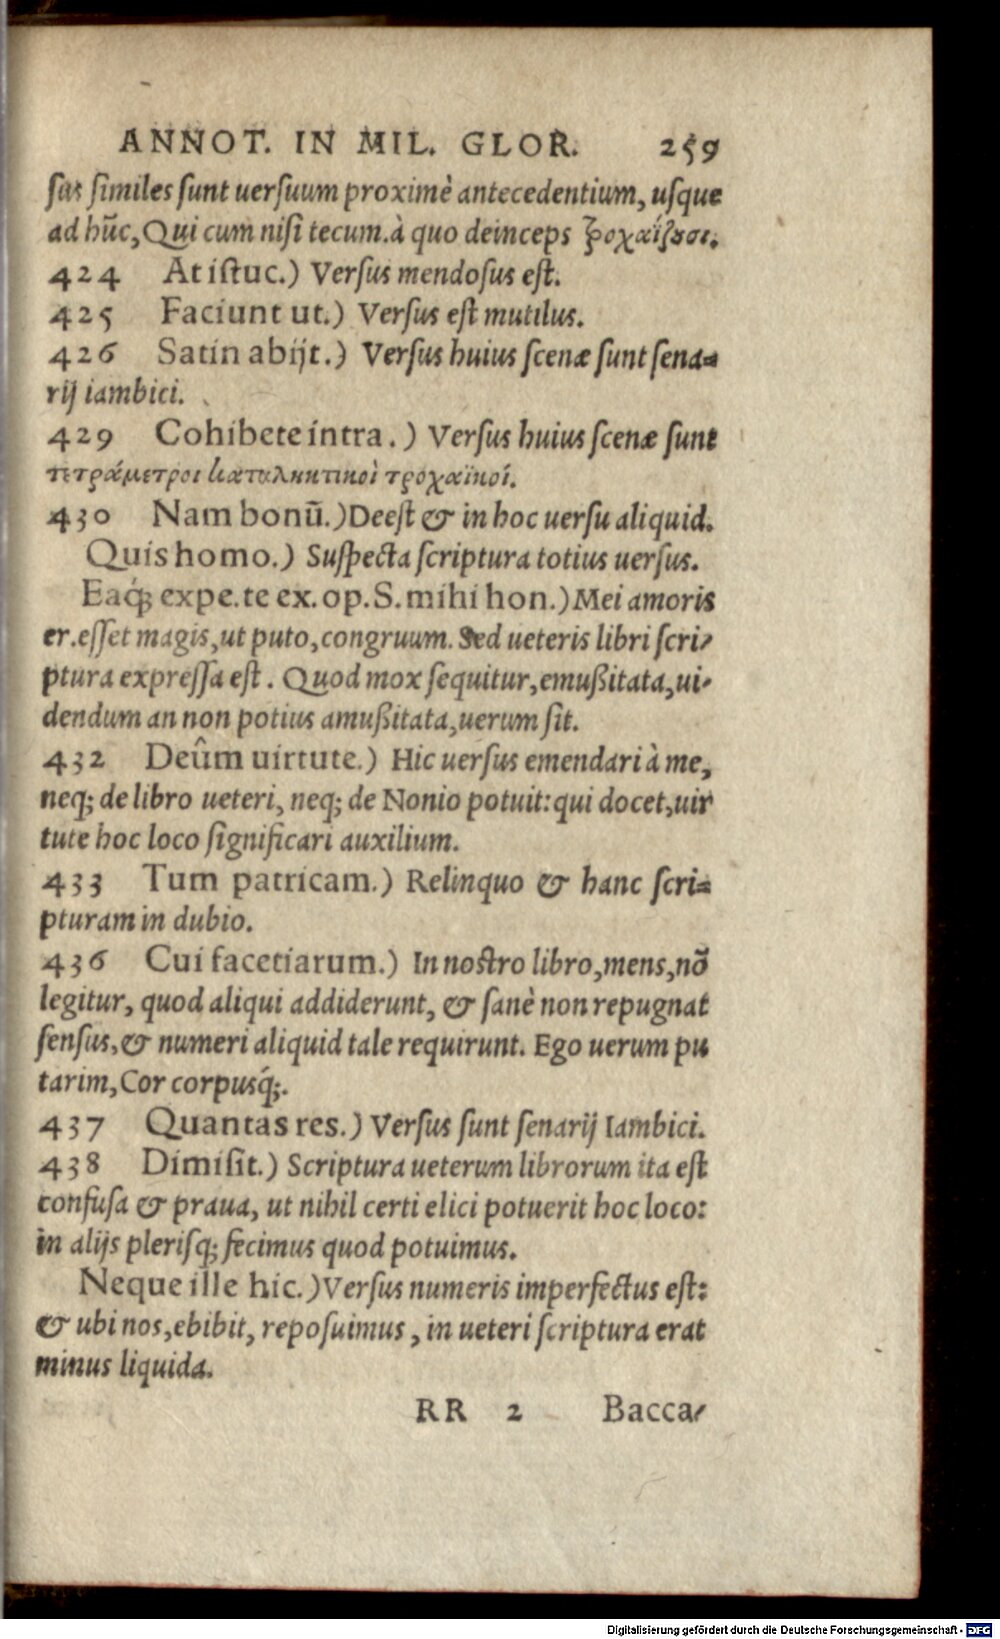 ANNOT. IN MIL. GLOR. 259
sus similes sunt uersuum proximè antecedentium, usque
ad hũc, Qui cum nisi tecum. à quo deinceps τροχαΐζουσι.
424 At istuc.) Versus mendosus est.
425 Faciunt ut.) Versus est mutilus.
426 Satin abijt.) Versus huius scenæ sunt sena=
rij iambici.
429 Cohibete intra.) Versus huius scenæ sunt
τετράμετροι καταληκτικοὶ τροχαϊκοί.
430 Nam bonũ.) Deest & in hoc uersu aliquid.
Quis homo.) Suspecta scriptura totius uersus.
Eaq́; expe. te ex. op. S. mihi hon.) Mei amoris
er. esset magis, ut puto, congruum. Sed ueteris libri scri-
ptura expressa est. Quod mox sequitur, emußitata, ui-
dendum an non potius amußitata, uerum sit.
432 Deûm uirtute.) Hic uersus emendari à me,
neq; de libro ueteri, neq; de Nonio potuit: qui docet, uir
tute hoc loco significari auxilium.
433 Tum patricam.) Relinquo & hanc scri=
pturam in dubio.
436 Cui facetiarum.) In nostro libro, mens, nõ
legitur, quod aliqui addiderunt, & sanè non repugnat
sensus, & numeri aliquid tale requirunt. Ego uerum pu
tarim, Cor corpusq́;.
437 Quantas res.) Versus sunt senarij Iambici.
438 Dimisit.) Scriptura ueterum librorum ita est
confusa & praua, ut nihil certi elici potuerit hoc loco:
in alijs plerisq; fecimus quod potuimus.
Neque ille hic.) Versus numeris imperfectus est:
& ubi nos, ebibit, reposuimus, in ueteri scriptura erat
minus liquida.
RR 2 Bacca-
Digitalisierung gefördert durch die Deutsche Forschungsgemeinschaft - DFG